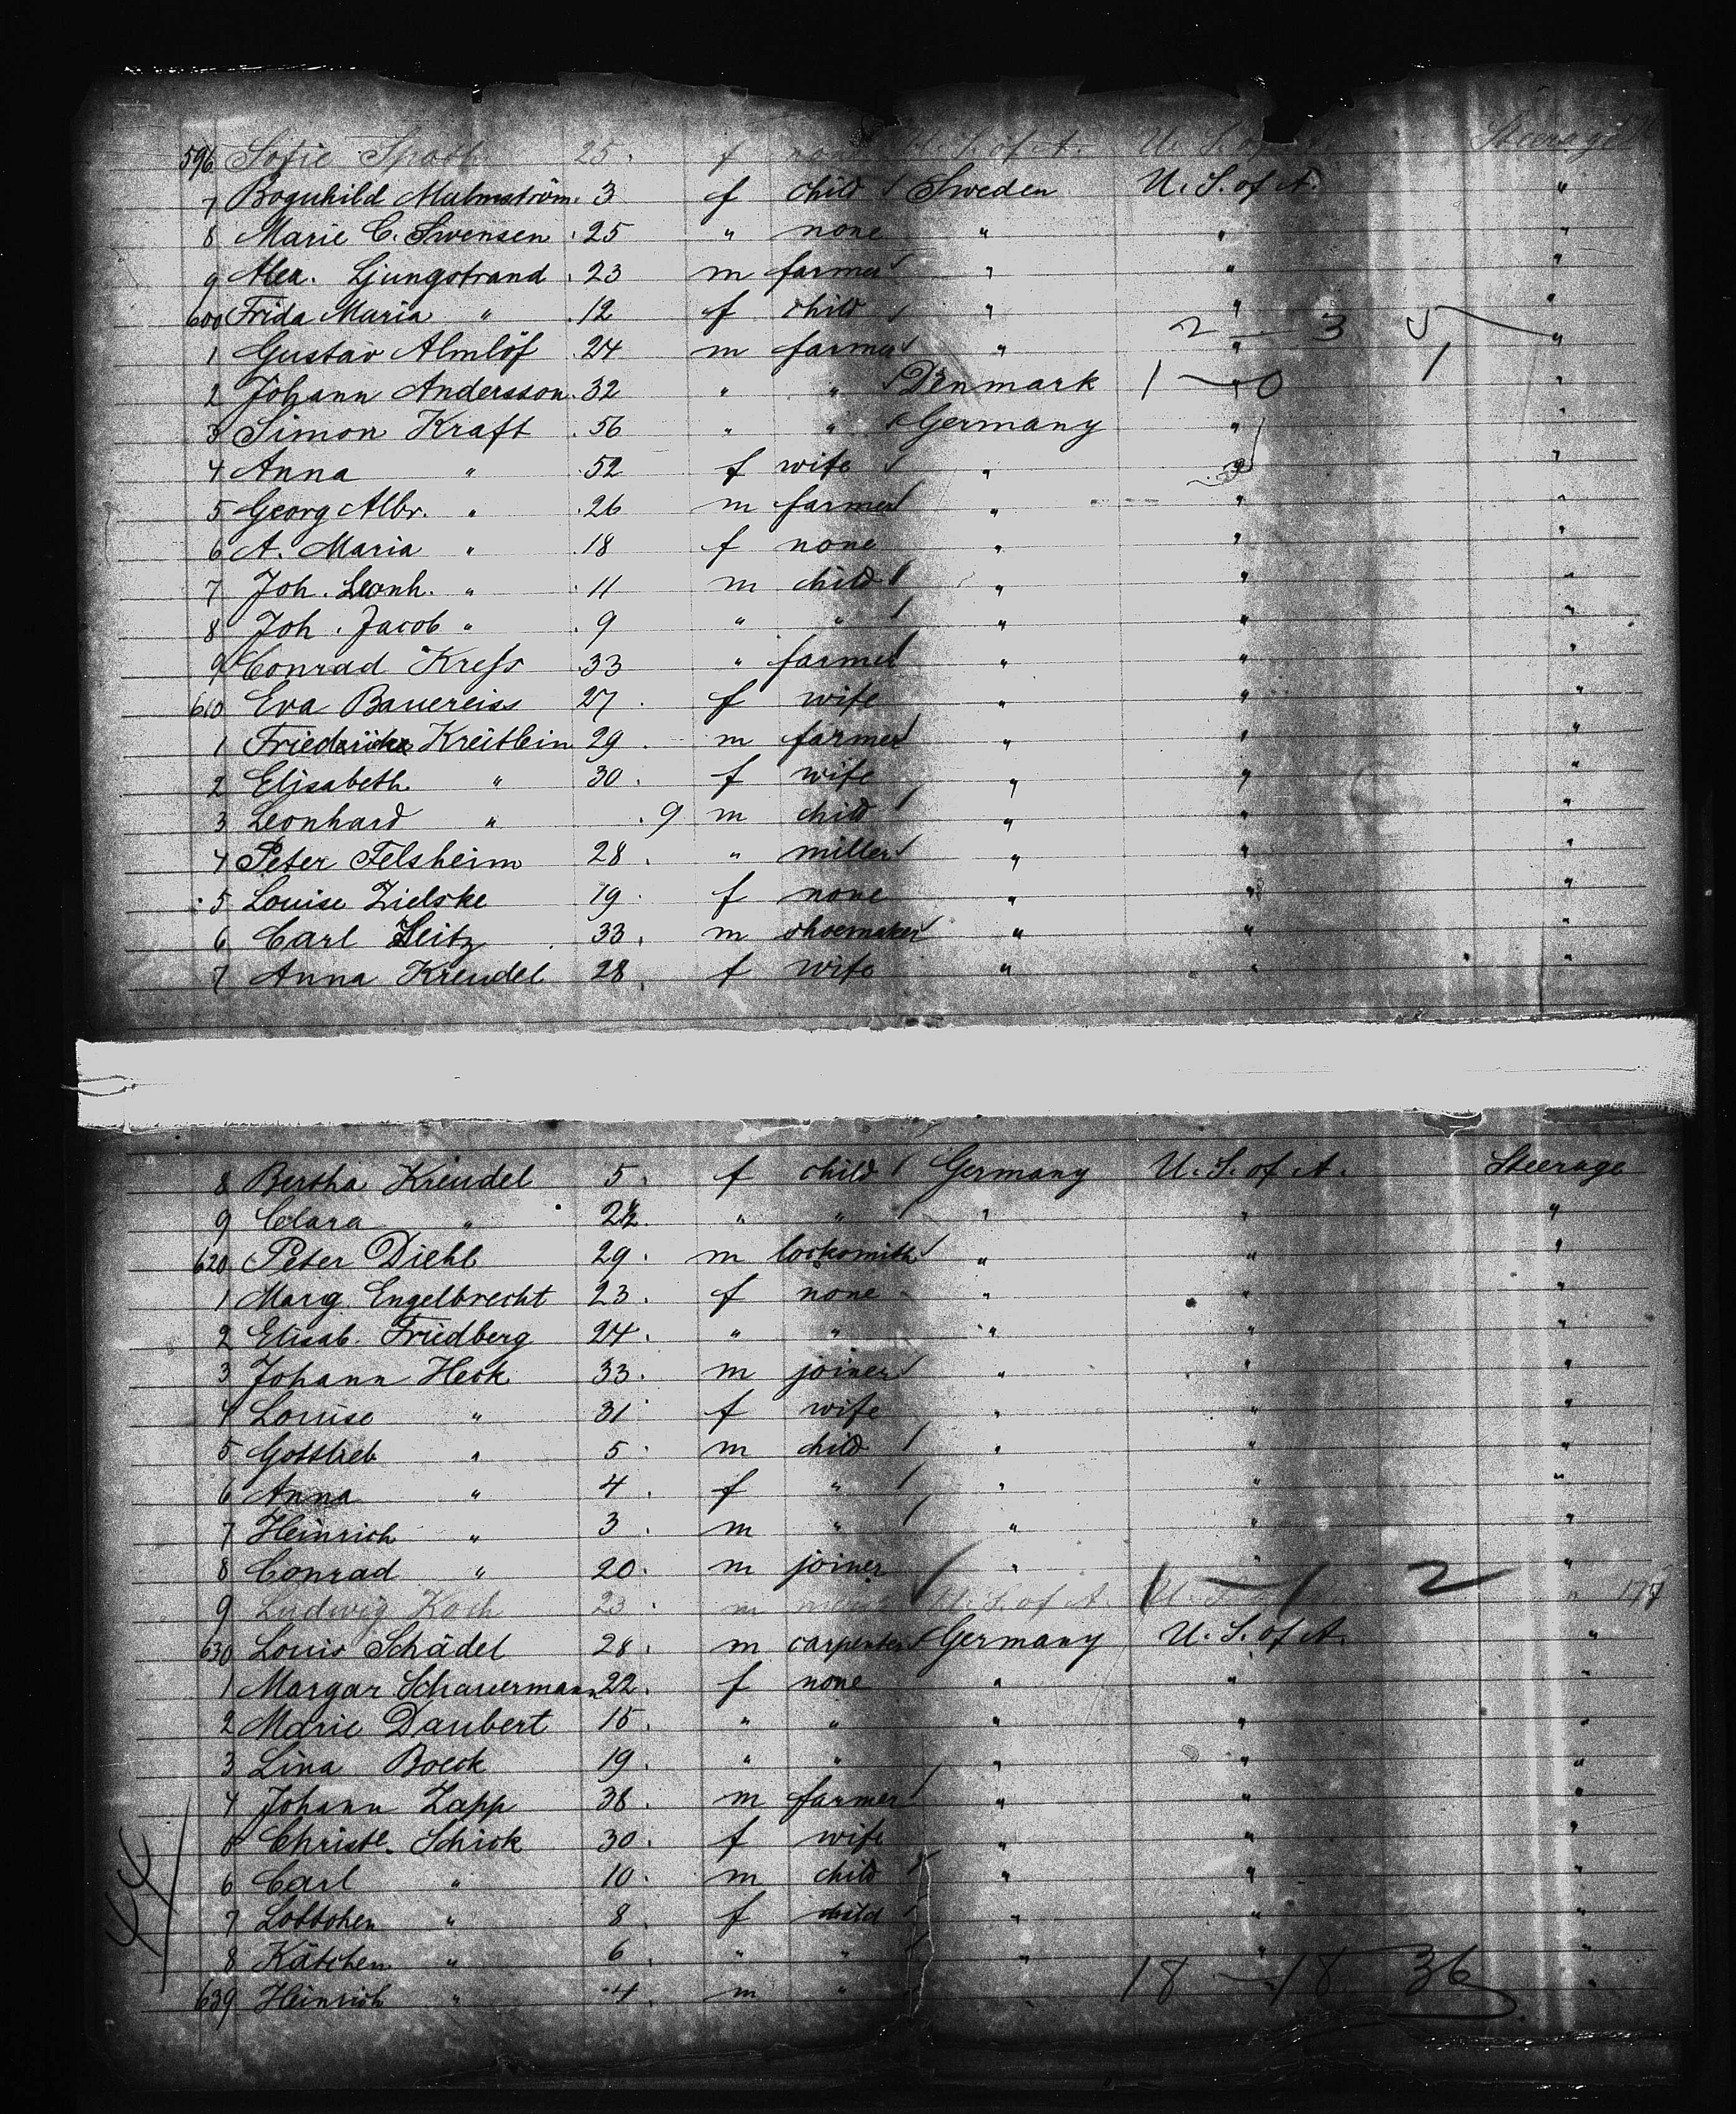 596 Sofie 25. f none U. S. of A. U. S. of A. Steerage
7 Boguhild Malmström 3 f child Sweden U. S. of A. "
8 Marie C. Swensen 25 " none " " "
9 Alex. Ljungstrand 23 m farmer " " "
600 Frida Maria " 12 f child " " "
2 — 3 5
1 Gustav Almlöf 24 m farmer " " "
2 Johann Andersson 32 " " Denmark " "
1 — 0 1
3 Simon Kraft 56 " " Germany " "
4 Anna " 52 f wife " " "
5 Georg Albr. " 26 m farmer " " "
6 A. Maria " 18 f none " " "
7 Joh. Leonh. " 11 m child " " "
8 Joh. Jacob " 9 " " " " "
9 Conrad Kreſs 33 " farmer " " "
610 Eva Bauereiss 27 f wife " " "
1 Kreitlein 29 m farmer " " "
2 Elisabeth " 30 f wife " " "
3 Leonhard " 9 m child " " "
4 Peter Felsheim 28 " miller " " "
5 Louise Zielske 19 f none " " "
6 Carl Seitz 33 m shoemaker " " "
7 Anna Kreudel 28 f wife " " "
8 Bertha Kreudel 5 f child Germany U. S. of A. Steerage
9 Clara " " " " " "
620 Peter Diehl 29 m locksmith " " "
1 Marg. Engelbrecht 23 f none " " "
2 Elisab. Friedberg 24 " " " " "
3 Johann Heck 33 m joiner " " "
4 Louise " 31 f wife " " "
5 Gottlieb " 5 m child " " "
6 Anna " 4 f " " " "
7 Heinrich " 3 m " " " "
8 Conrad " 20 m joiner " " "
1 — 1 2
9 Ludwig Koch 23 m U. S. of A. U. S. of A. "
630 Louis Schädel 28 m carpenter Germany U. S. of A. "
1 Margar Schauermann 22 f none " " "
2 Marie Daubert 15 " " " " "
3 Lina Boeck 19 " " " " "
4 Johann Zapp 38 m farmer " " "
5 Christe. Schick 30 f wife " " "
6 Carl " 10 m child " " "
7 Lottchen " 8 f child " " "
8 Kätchen " 6 " " " " "
639 Heinrich " 4 m " "
18 — 18 36